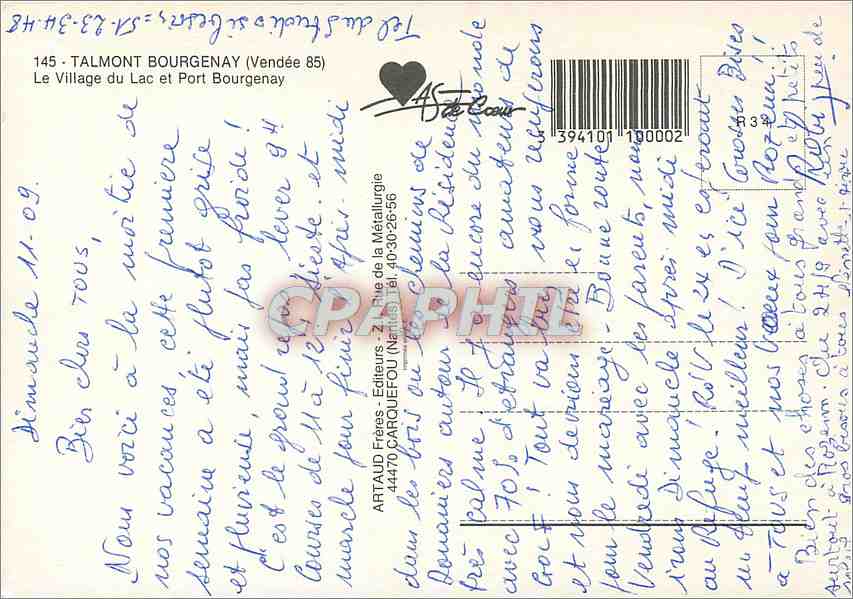 145 - TALMONT BOURGENAY (Vendée 85)
Le Village du Lac et Port Bourgenay
As de Coeur
3 394101 100002
R 34
ARTAUD Frères - Editeurs - Z. Rue de la Métallurgie
44470 CARQUEFOU (Nantes) Tél. 40-30-26-56
CPAPHIL
Tel du Studio = 51-23-34-48
Dimanche 11-09.
Bien chers TOUS,
Nous voici à la moitié de
nos vacances, cette première
semaine a été plutôt grise
et pluvieuse, mais pas froide!
C'est le grand repos lever 9H
Courses de 11 à 12H, Sieste. et
marche pour finir l'Après-midi
dans les bois ou les chemins de
Douaniers autour de la Résidence
très calme. Il y a encore du monde
avec 70% d'étrangers amateurs de
GOLF! Tout va bien, nous
et nous devrions être en forme
pour le mariage - Bonne route
Vendredi avec les parents, nous
irons Dimanche après midi
au Refuge! RdV le 24 e,
un meilleur! D'ici Grosses Bises
à TOUS et nos voeux pour Rozenn!
Bien des choses à tous grands et petits
surtout à Rozenn. Le 27/9 avec
Gros bisous à tous